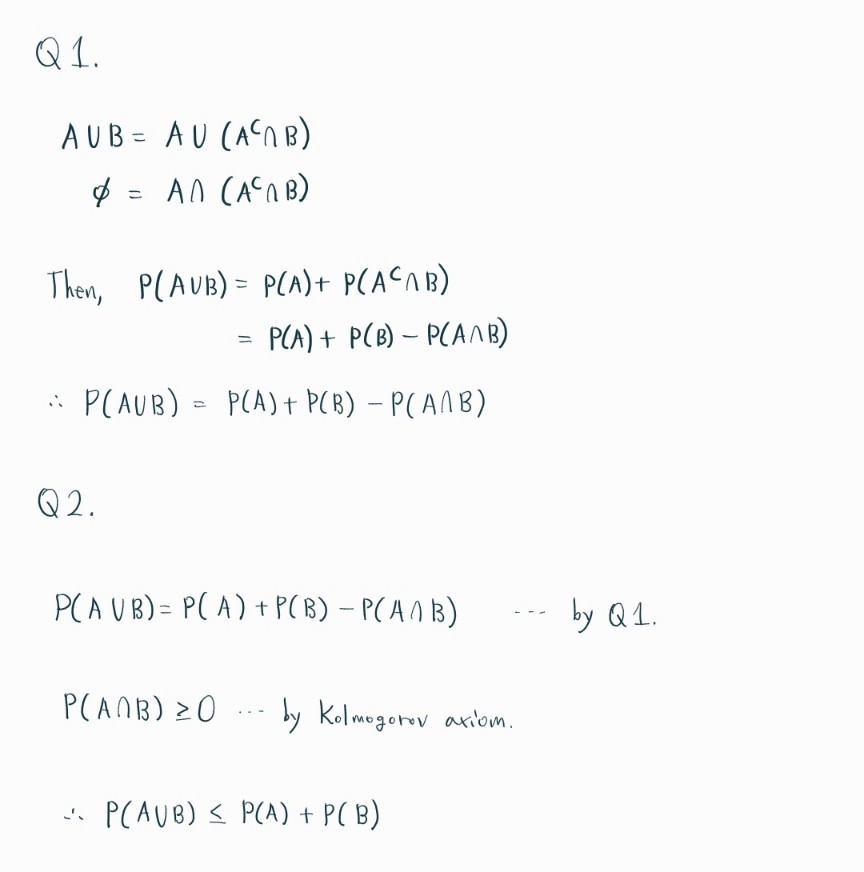 Q1.
A∪B = A∪(Aᶜ∩B)
∅ = A∩(Aᶜ∩B)
Then, P(A∪B) = P(A)+ P(Aᶜ∩B)
= P(A)+ P(B) – P(A∩B)
∴ P(A∪B) = P(A)+P(B) – P(A∩B)
Q2.
P(A∪B)= P(A)+P(B) – P(A∩B) --- by Q1.
P(A∩B) ≥0 --- by Kolmogorov axiom.
∴ P(A∪B) ≤ P(A) + P(B)